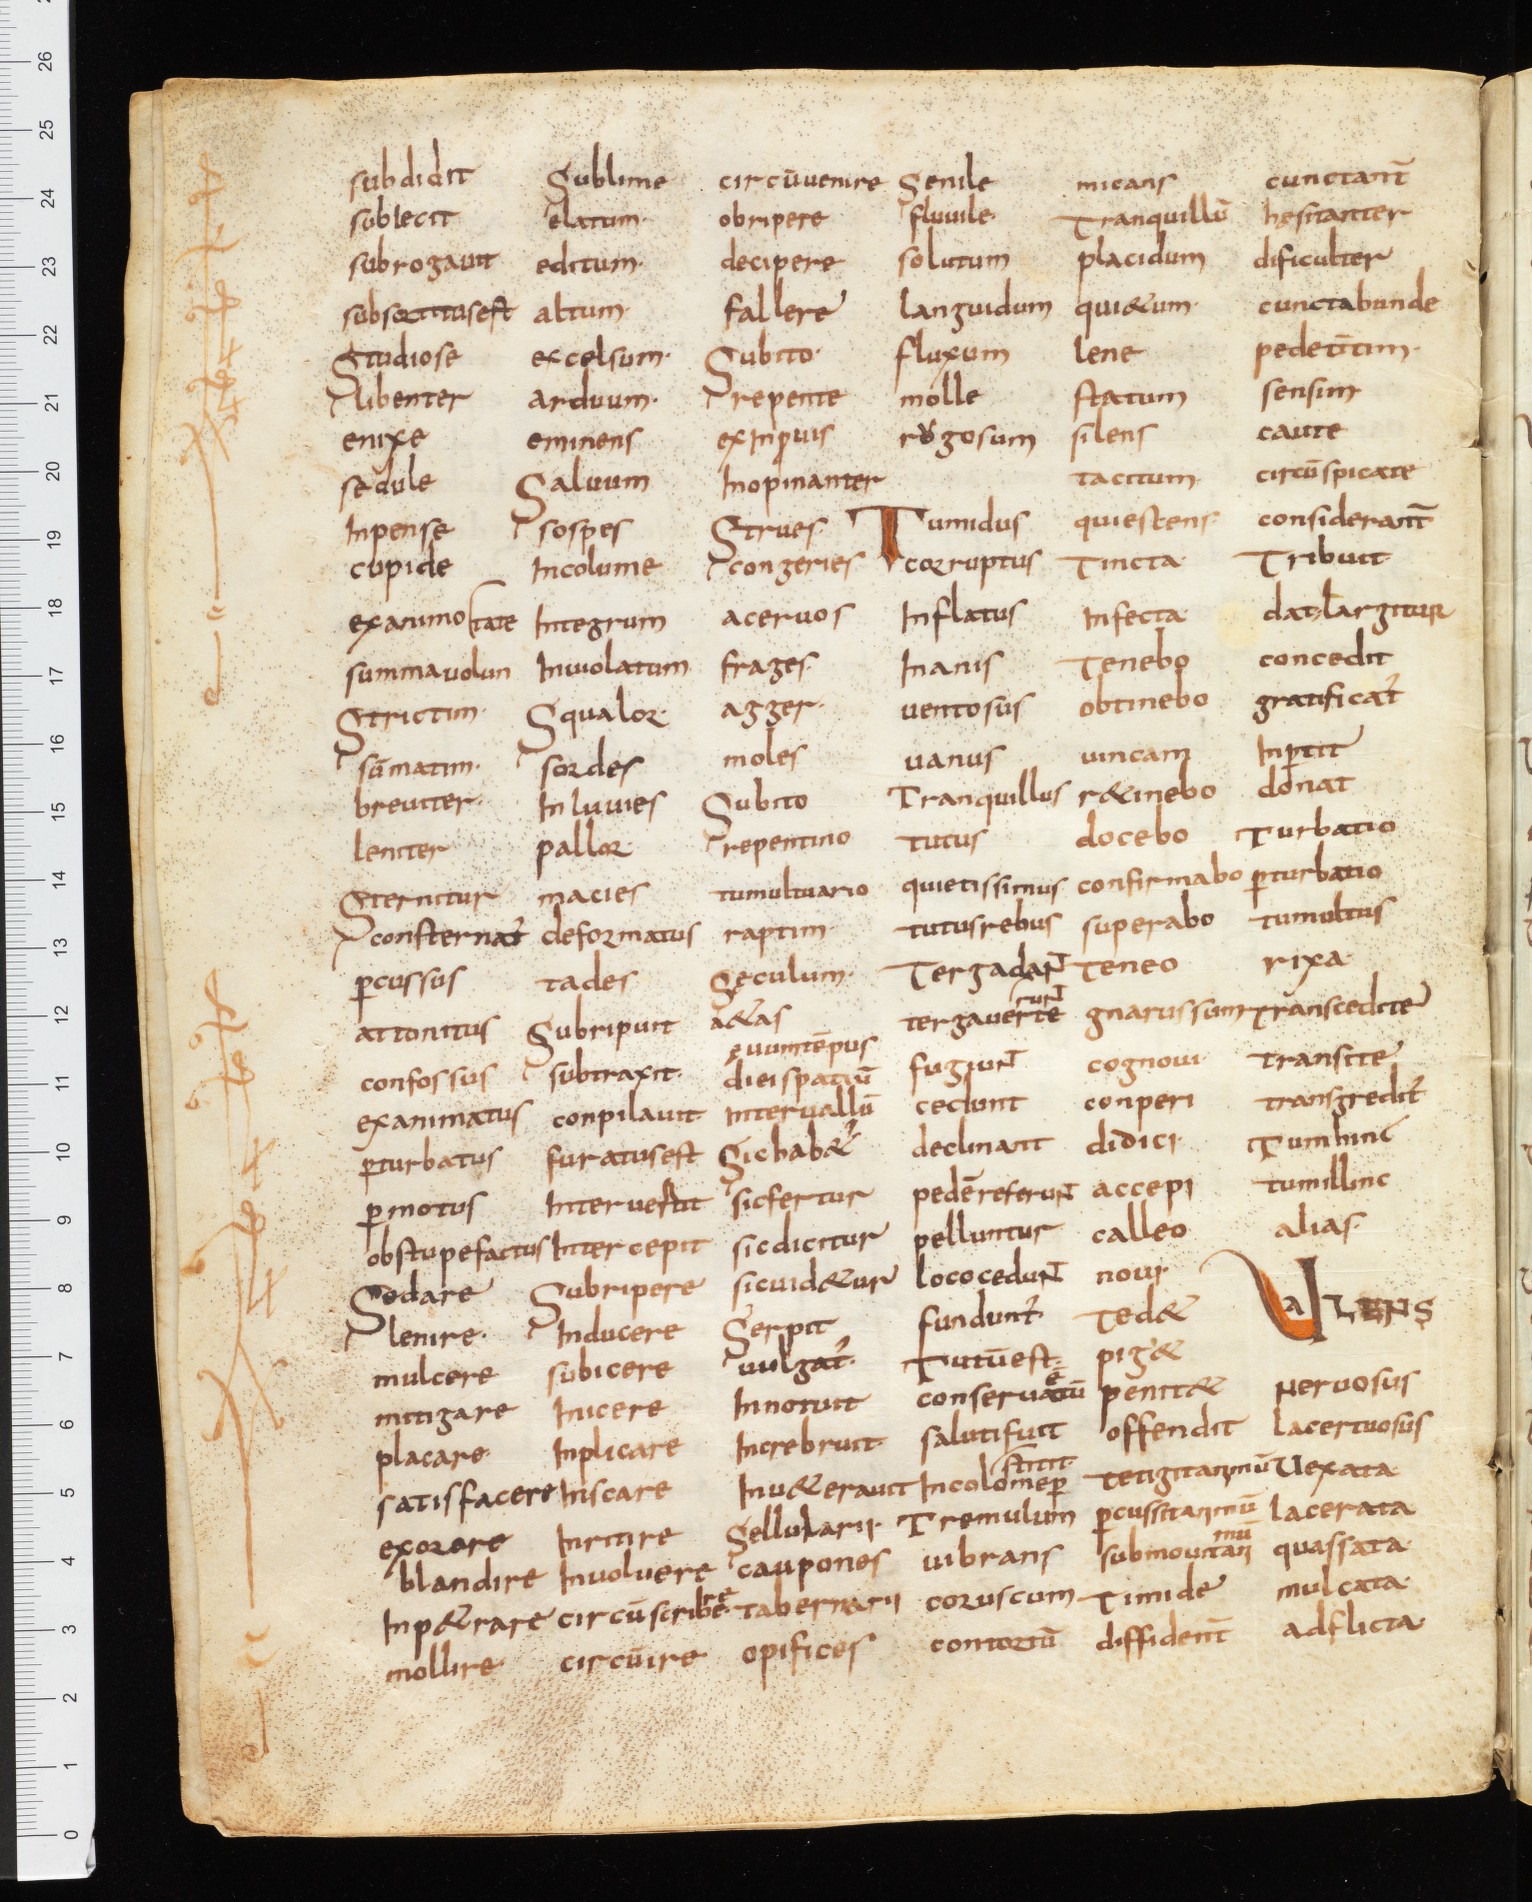 subdidit
subiecit
subrogauit
subsortitus est
Studiose
libenter
enixe
sedule
Inpense
cupide
exanimo tate
summauolun
Strictim
sūmatim
breuiter
leniter
Sternitur
consternat̄
ꝑcussus
attonitus
confossus
exanimatus
ꝑturbatus
ꝑmotus
obstupefactus
Sedare
lenire
mulcere
mitigare
placare
satisfacere
exorare
blandire
Inp&rare
mollire
Sublime
elatum
editum
altum
excelsum
arduum
eminens
Saluum
sospes
Incolume
Integrum
Inuiolatum
Squalor
sordes
Inluuies
pallor
macies
deformatus
tades
Subripuit
subtraxit
conpilauit
furatus est
Interuertit
Intercepit
Subripere
Inducere
subicere
Inicere
Inplicare
Inscare
Inritire
Inuoluere
circūscribere
circūire
circūuenire
obripere
decipere
fallere
Subito
repente
exinprouis
Inopinanter
Strues
congeries
aceruos
frages
agger
moles
Subito
repentino
tumultuario
raptim
Seculum
a&as
ęuum tēpus
diei spatiū
Interuallū
Sic hab&
sic fertur
sic dicitur
sic uid&ur
Serpit
uulgat̄
Innotuit
Increbruit
Inu&erauit
Sellularii
caupones
tabernarii
opifices
Senile
fluuile
solutum
languidum
fluxum
molle
rugosum
Tumidus
corruptus
Inflatus
Inanis
uentosus
uanus
Tranquillus
tutus
quietissimus
tutus rebus
Terga daNT
terga uerterunT
fugiuNT
cedunt
declinant
pedē referuNT
pelluntur
loco ceduNT
fundunt̄
Tutū est
conseruatū ē
saluti fuit
Incolomē ꝑstitit
Tremulum
uibrans
coruscum
contortū
micans
Tranquillū
placidum
qui&um
lene
statum
silens
tacitum
quiescens
Tincta
Infecta
Tenebo
obtinebo
uincam
r&inebo
docebo
confirmabo
superabo
Teneo
gnarus sum
cognoui
conperi
didici
accepi
calleo
noui
Ted&
pig&
penit&
offendit
tetigit animū
ꝑcussit animū
submouit animū
Timide
diffident̄
cunctant̄
hesitanter
dificulter
cunctabunde
pedetītim
sensim
caute
circūspicate
considerant̄
Tribuit
dat largitur
concedit
gratificat̄
Inptit
donat
Turbatio
ꝑturbatio
tumultus
rixa
Transcedite
transite
transgredit̄
Tum hinc
tum illinc
alias
UaLENS
Neruosus
lacertuosus
Uexata
lacerata
quassata
mulcata
adflicta